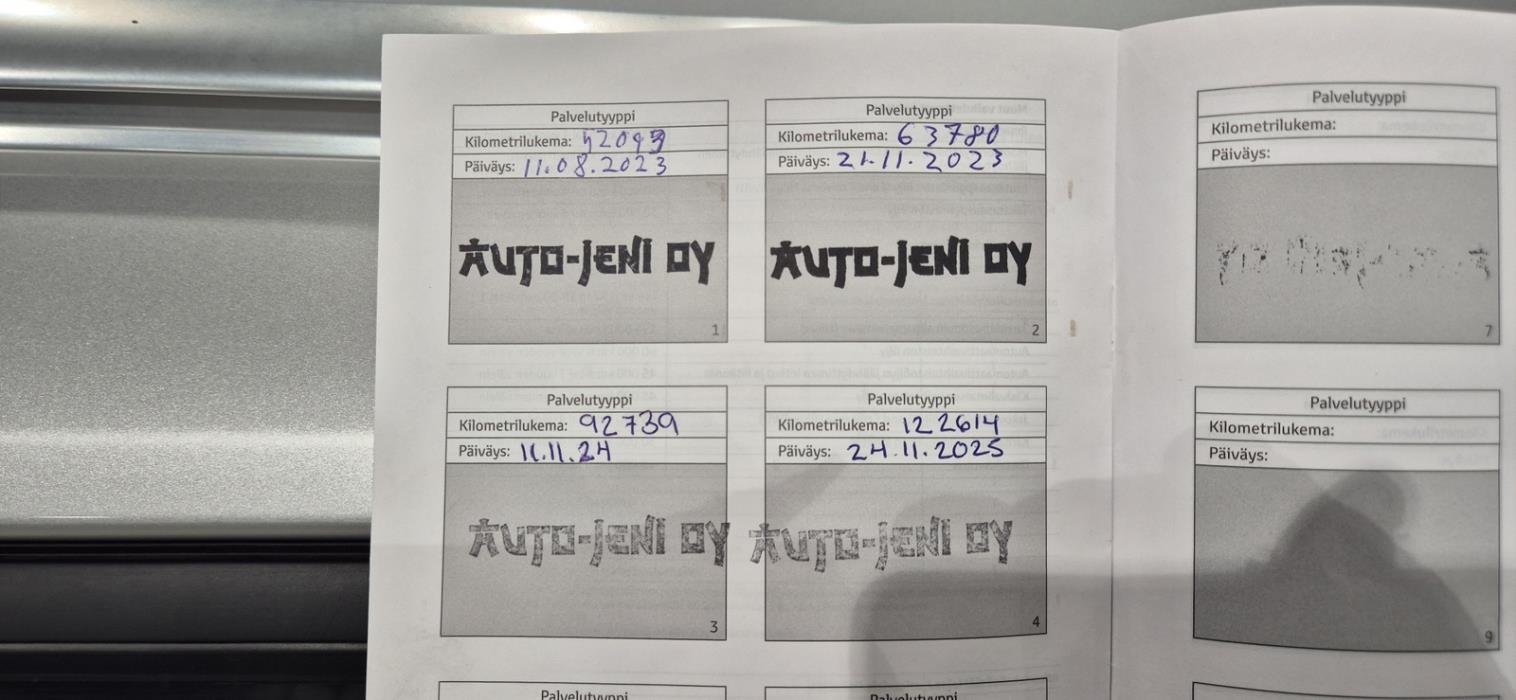 Palvelutyyppi
Kilometrilukema: 52099
Päiväys: 11.08.2023
AUTO-JENI OY
1
Palvelutyyppi
Kilometrilukema: 63780
Päiväys: 21.11.2023
AUTO-JENI OY
2
Palvelutyyppi
Kilometrilukema: 92739
Päiväys: 11.11.24
AUTO-JENI OY
3
Palvelutyyppi
Kilometrilukema: 122614
Päiväys: 24.11.2025
AUTO-JENI OY
4
Palvelutyyppi
Palvelutyyppi
Palvelutyyppi
Kilometrilukema:
Päiväys:
7
Palvelutyyppi
Kilometrilukema:
Päiväys:
9